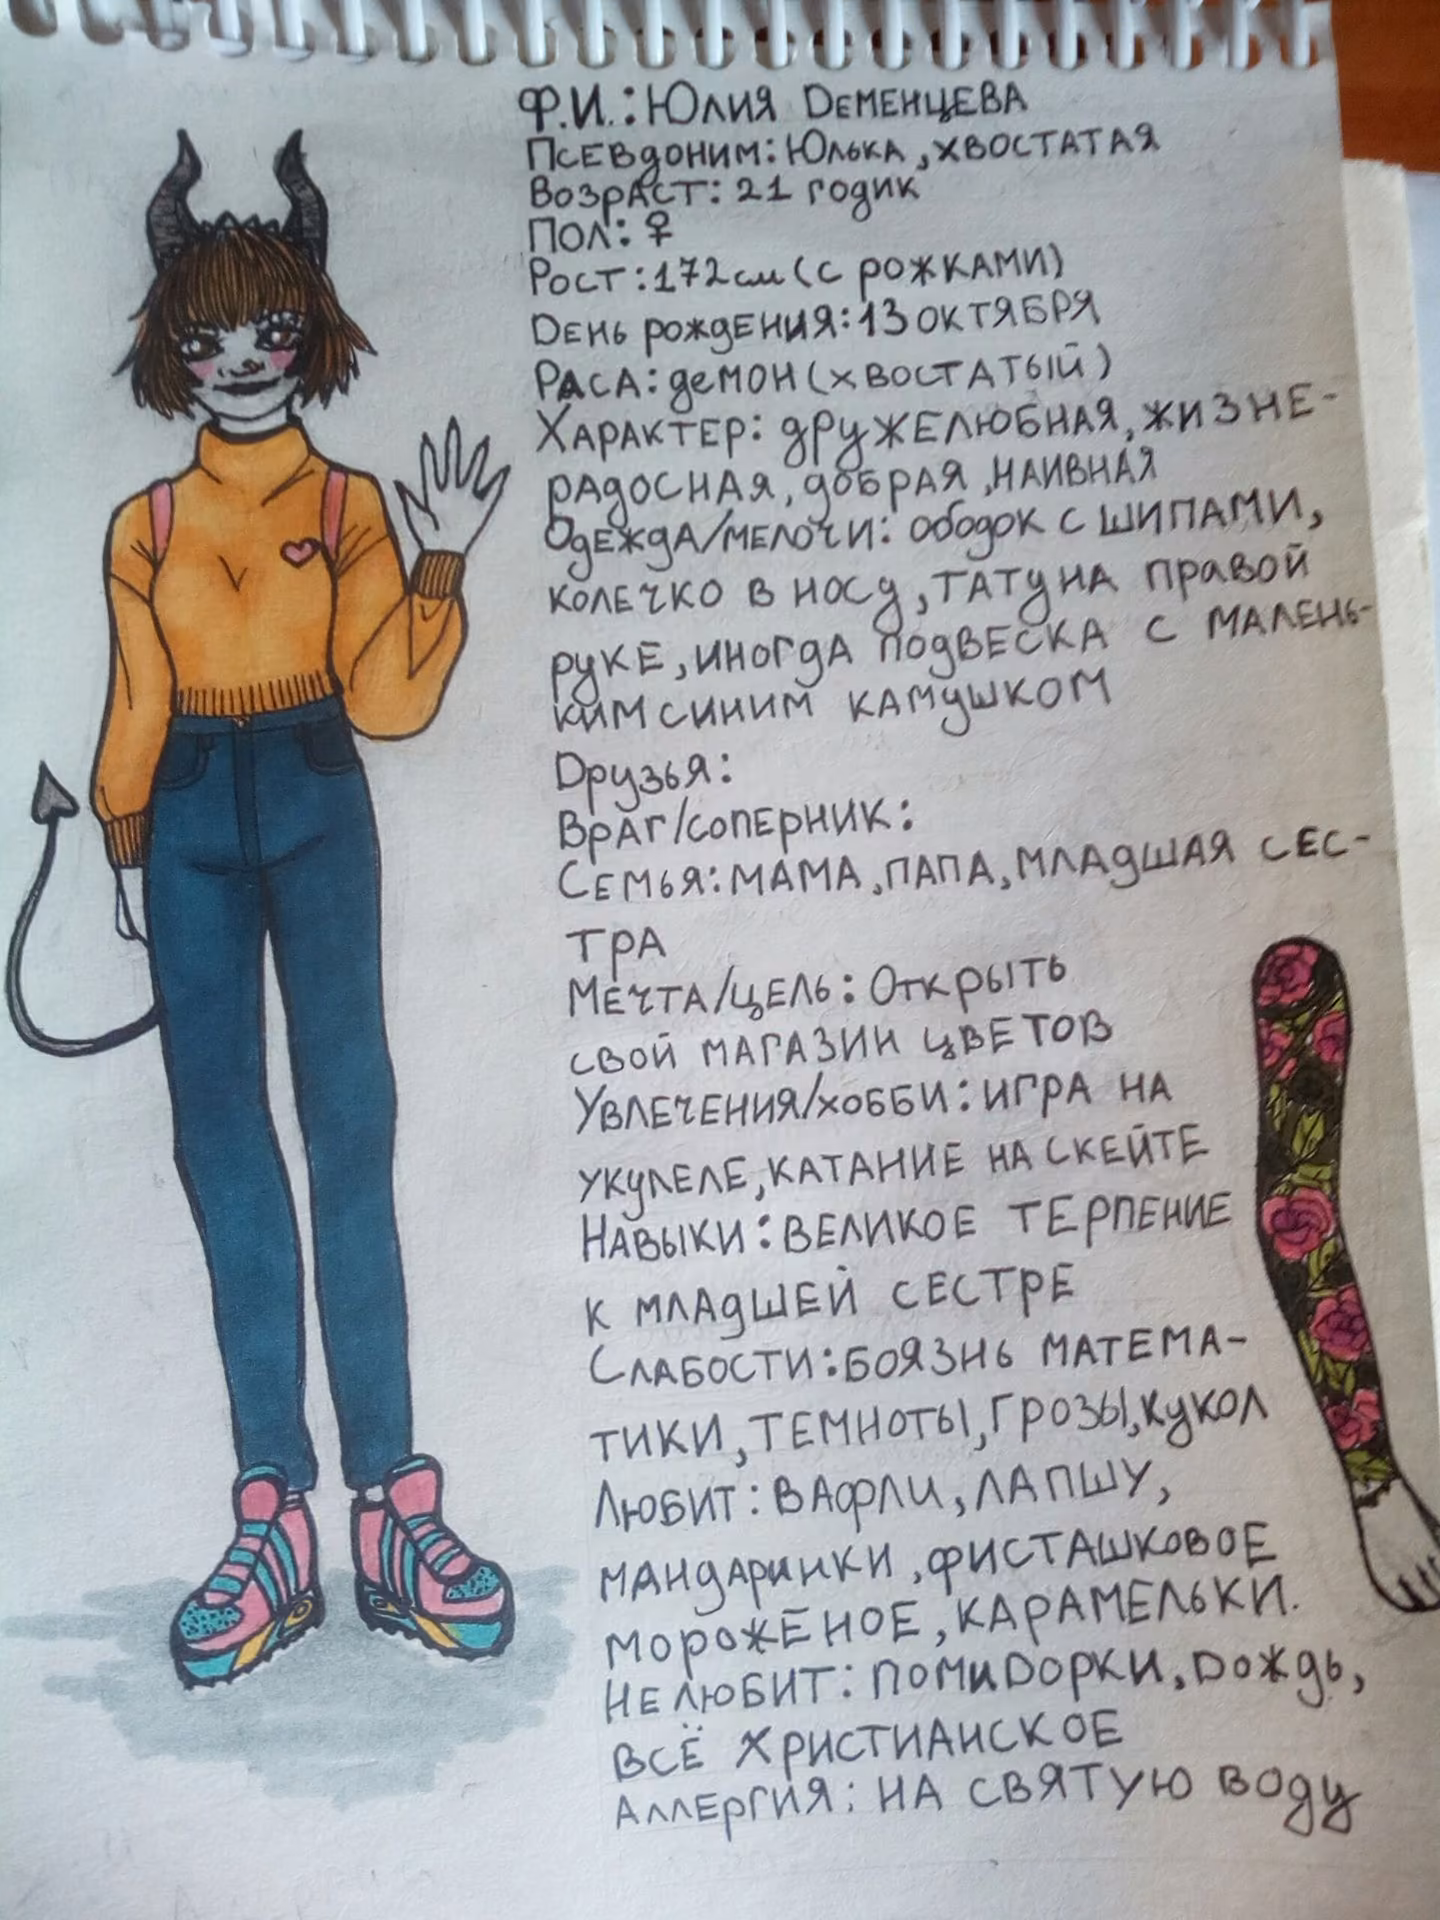 Ф.И.: Юлия Деменцева
Псевдоним: Юлька, хвостатая
Возраст: 21 годик
Пол: ♀
Рост: 172 см (с рожками)
День рождения: 13 октября
Раса: демон (хвостатый)
Характер: дружелюбная, жизне-
радосная, добрая, наивная
Одежда/мелочи: ободок с шипами,
колечко в носу, тату на правой
руке, иногда подвеска с малень-
ким синим камушком
Друзья:
Враг/соперник:
Семья: мама, папа, младшая сес-
тра
Мечта/цель: Открыть
свой магазин цветов
Увлечения/хобби: игра на
укулеле, катание на скейте
Навыки: великое терпение
к младшей сестре
Слабости: боязнь матема-
тики, темноты, грозы, кукол
Любит: вафли, лапшу,
мандаринки, фисташковое
мороженое, карамельки.
Не любит: помидорки, дождь,
всё христианское
Аллергия: на святую воду